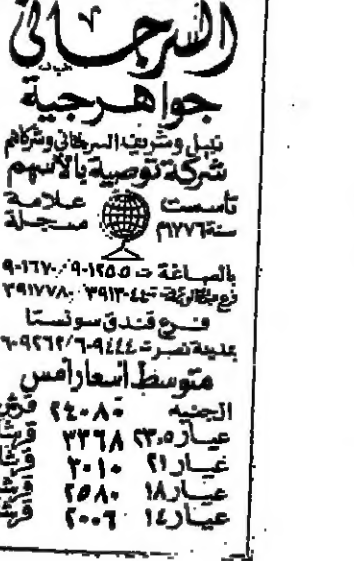 السرجانى
جواهرجية
نبيل وشريف السرجانى وشركاهم
شركة توصية بالأسهم
تأسست علامة
سنة ١٧٧٦م مسجلة
بالصاغة ت ٩٠١٢٥٥ / ٩٠١٦٧٠
فرع ت ٣٩١٣٠٤٤ / ٣٩١٧٧٨٠
فرع فندق سونستا
بمدينة نصر ت ٦٠٩٤٤٤ / ٦٠٩٢٦٢
متوسط أسعار أمس
الجنيه ٢٤٠٨٠ قرش
عيار ٢٣،٥ ٣٣٦٨ قرشا
عيار ٢١ ٣٠١٠
عيار ١٨ ٢٥٨٠
عيار ١٤ ٢٠٠٦